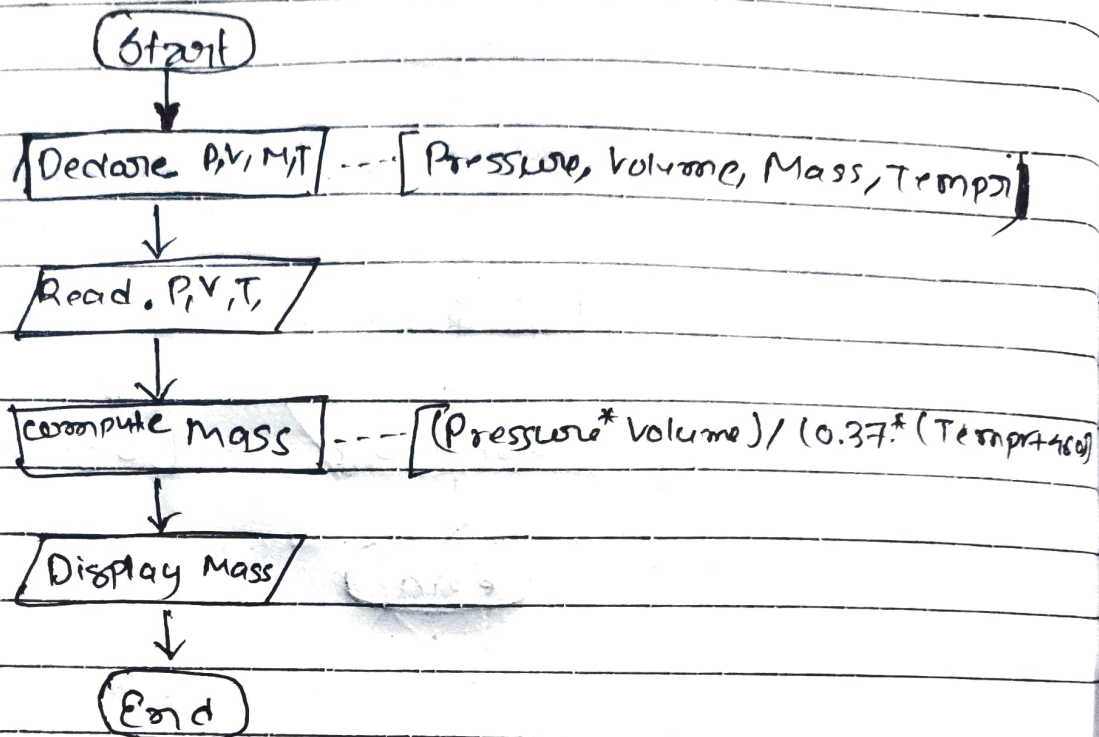 Start
Declare P,V, M,T ---- [Pressure, Volume, Mass, Tempr]
Read. P,V,T,
compute Mass ---- [(Pressure* Volume)/(0.37*(Tempr+460)
Display Mass
End